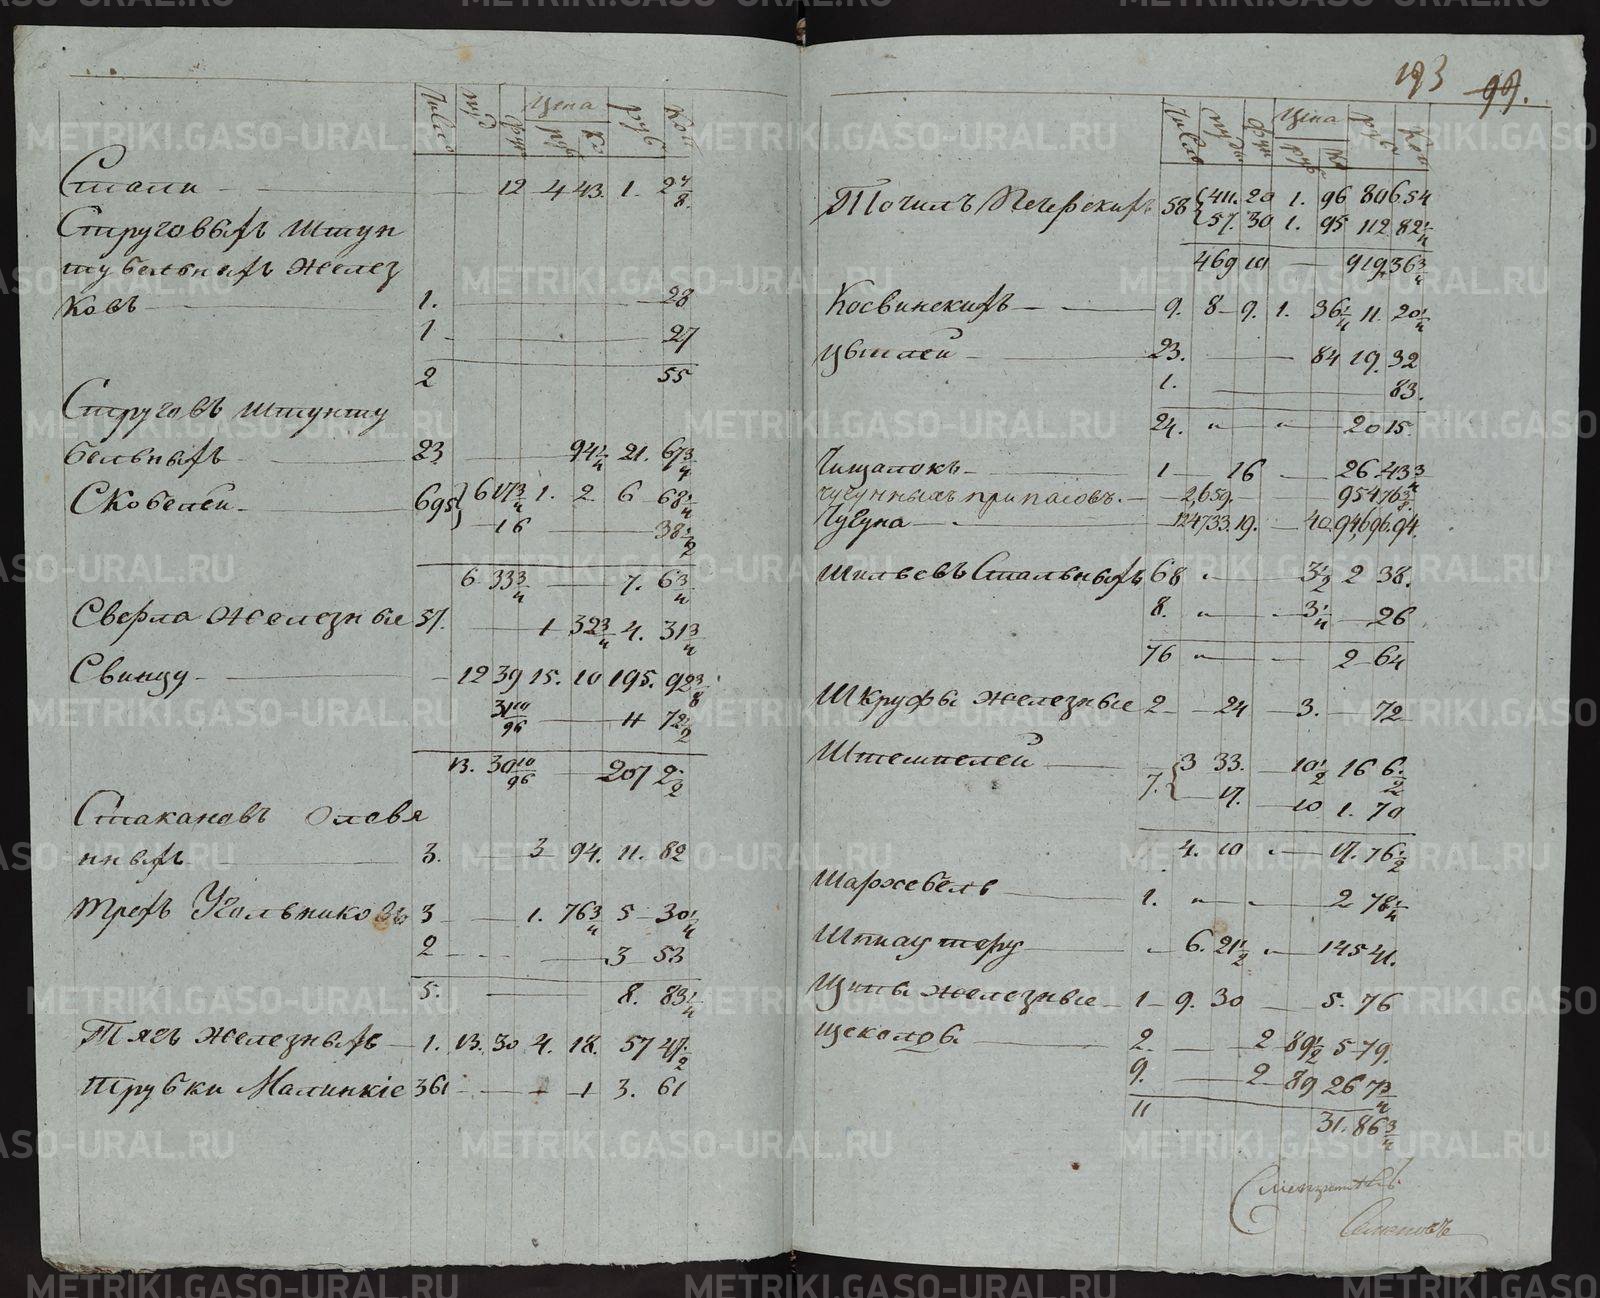 Число пуд фун Цена руб Коп
руб Ко
Стали 12 4 43. 1. 2 4/8.
Струговыхъ Шпун
тубельныхъ Желез
ковъ 1. 28
1 27
2 55
Струговъ шпунту
бельныхъ 23. 94 1/4 21. 67 3/4
Скобелей 695 6 17 3/4 1. 2 6 68 1/4
16 38 1/2
6 33 3/4 7. 6 3/4
Сверла Железные 51. 1 32 3/4 4. 31 3/4
Свинцу 12 39 15. 10 195. 92 3/8
31 10/96 11 72 1/2
13. 30 10/96 207 2 1/2
Стакановъ Оловя
нныхъ 3. 3 94. 11. 82
Трехъ Угольниковъ 3 1. 76 3/4 5 30 1/4
2 3 53
5. 8. 83 1/4
Тягъ железныхъ 1. 13. 30 4. 18. 57 47 1/2
Трубки Малинкіе 361 1 3. 61
193 99.
Число пуды фун Цена руб Коп
руб Ко
Точилъ Печерскихъ 58 411. 20 1. 96 806. 54
57. 30 1. 95 112 82 1/4
469 10 919. 36 3/4
Косвинскихъ 9. 8 9. 1. 36 1/4 11. 20 1/4
Цвилей 23. 84 19. 32
1. 83.
24. " " 20 15.
Чищалокъ 1 16 26 43 3/4
чугунныхъ припасовъ. 2,659. 954 76 3/8.
Чугуна 124733. 19. 40. 94,696. 94.
Шильевъ Стальныхъ 68 3 1/2 2 38.
8. " 3 1/4 26
76 " 2 64
Шкруфы железные 2 24 3. 72
Штемпелей 3 33. 10 1/2 16 6 1/2
7. 17. 10 1. 70
4. 10 17. 76 1/2
Шархебель 1. " 2 78 1/4
Шпиаутеру 6. 21 1/2 145 41.
Щипы железные 1 9. 30 5. 76
Щеколдъ 2. 2 89 1/2 5 79.
9. 2 89 26 7 3/4
11 31. 86 3/4
Смотритель
METRIKI.GASO-URAL.RU